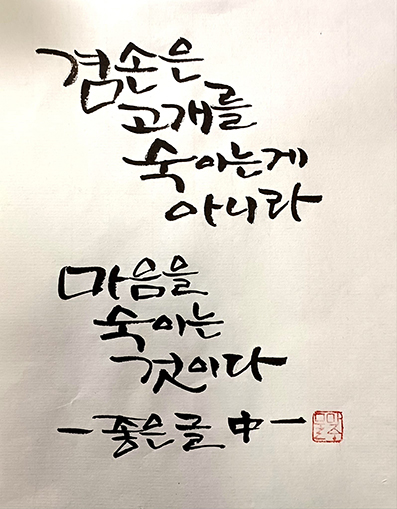 겸손은
고개를
숙이는게
아니라
마음을
숙이는
것이다
-좋은글 中-